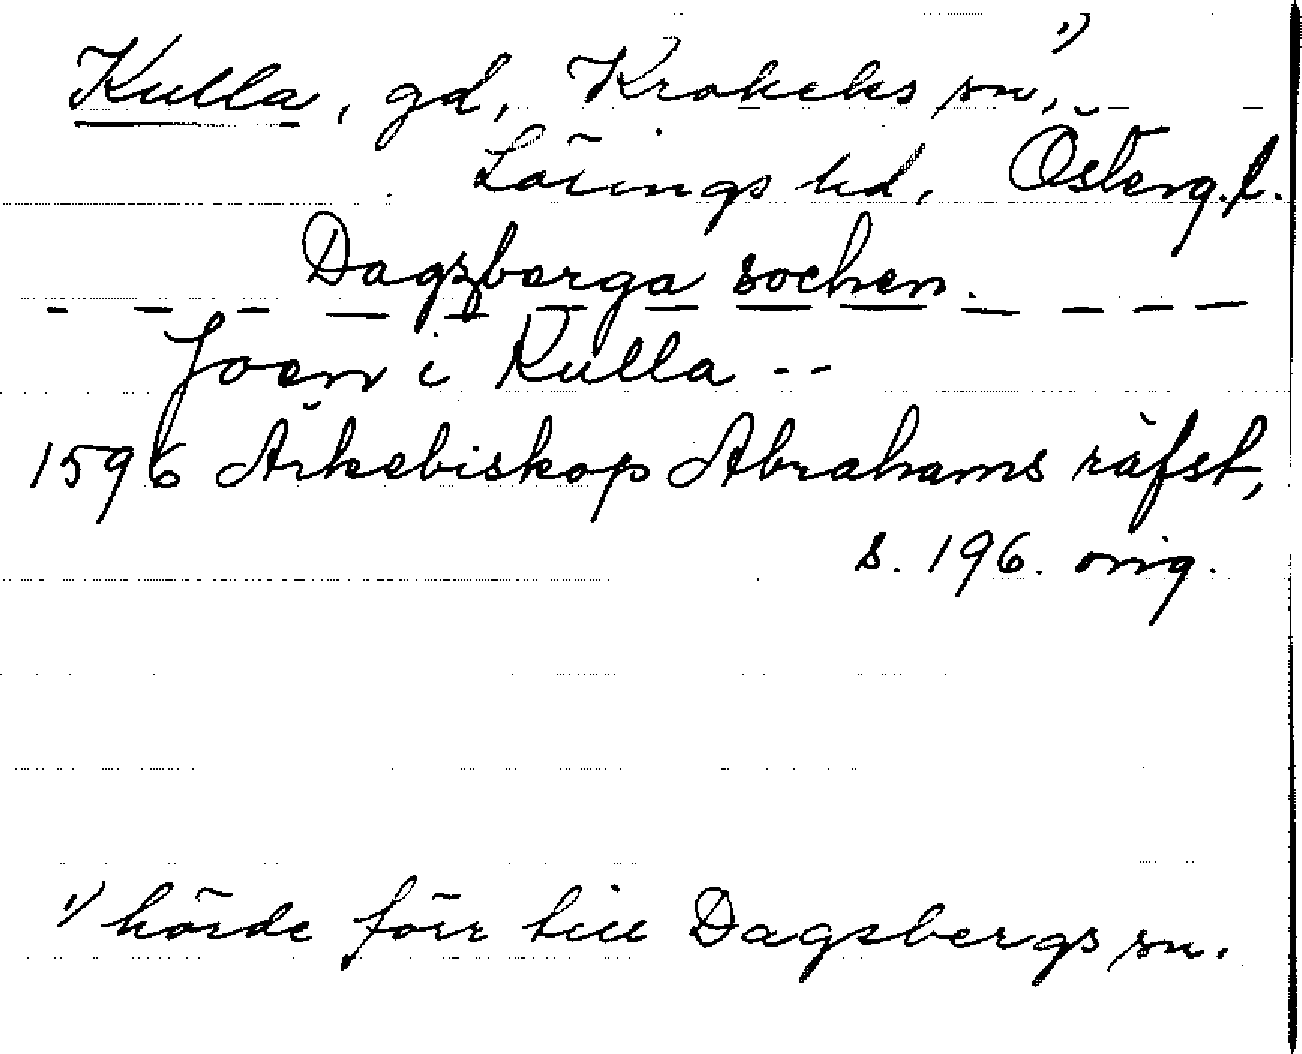 Kulla, gd, Krokeks sn,¹⁾
Lösings hd, Österg.l.
Dagzberga sochen.
Joen i Kulla --
1596 Ärkebiskop Abrahams räfst,
s. 196. orig.
¹⁾ hörde förr till Dagsbergs sn.